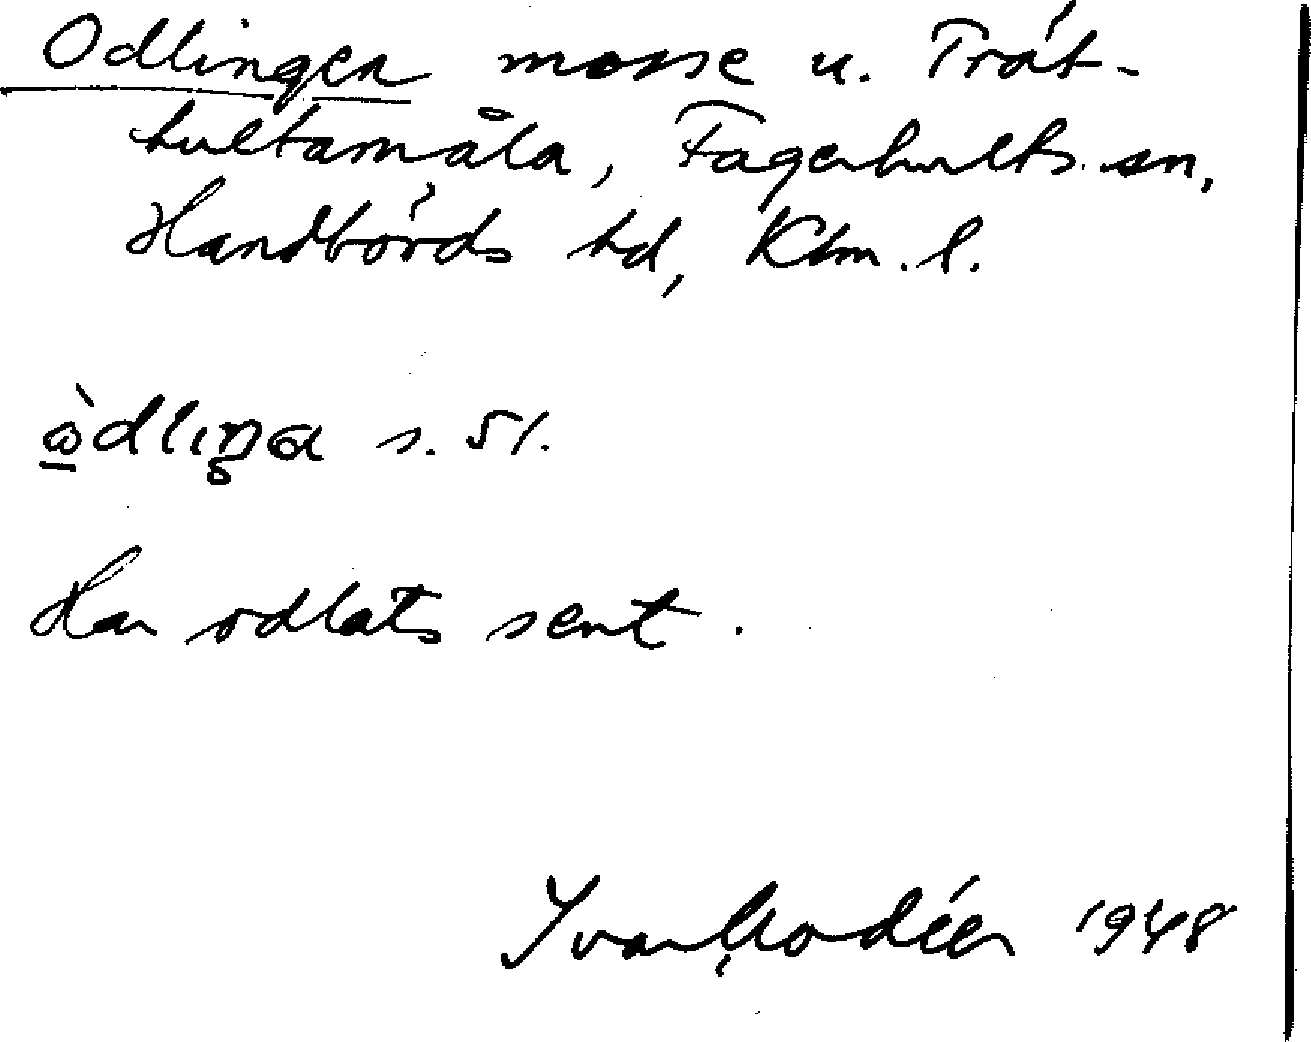 Odlingen mosse u. Tröt-
hultamåla, Fagerhults sn,
Handbörds hd, Klm. l.
ὼdlıŋa s. 51.
Har odlats sent.
Ivar Modéer 1948